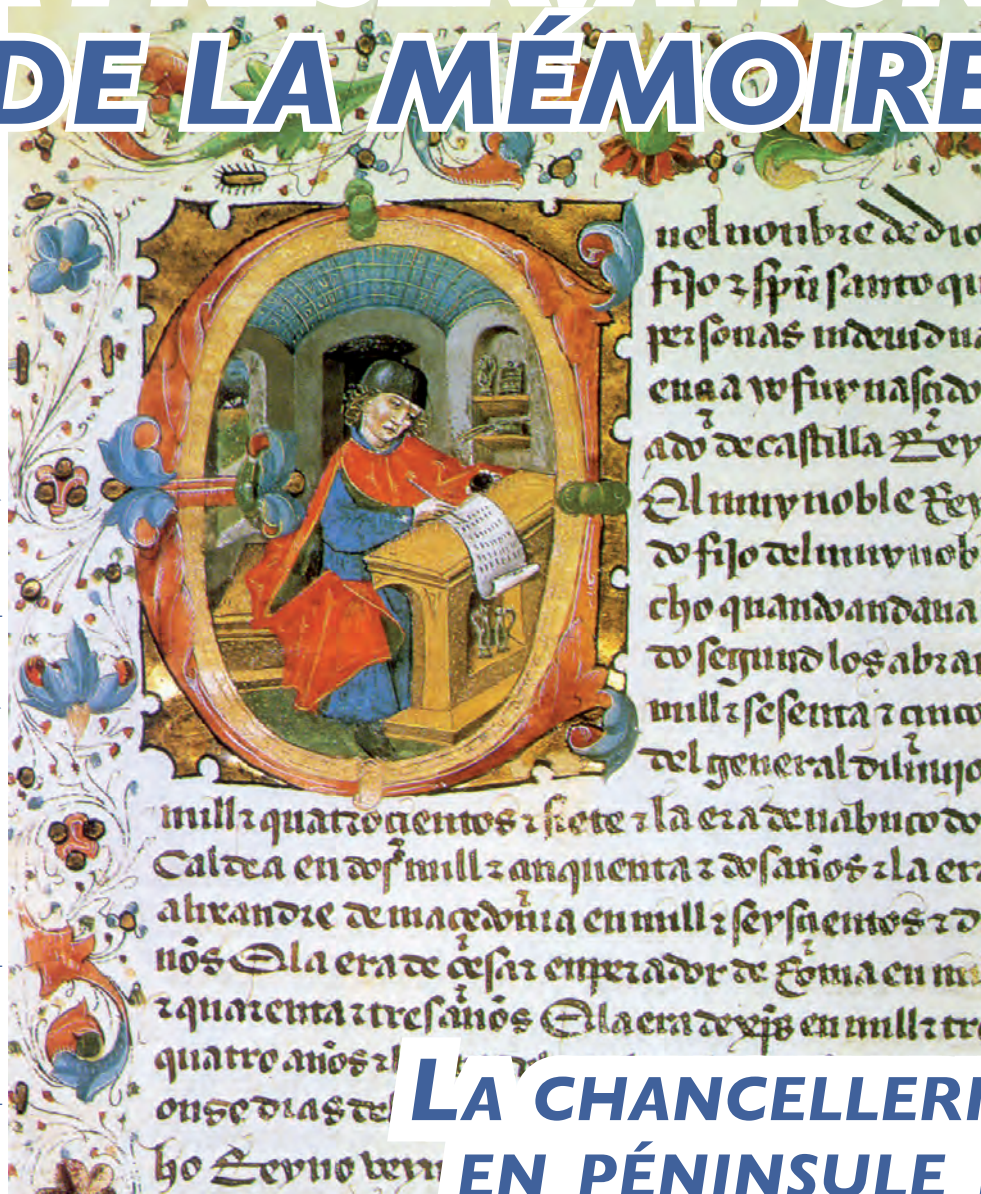 DE LA MÉMOIRE
nel nonbre de dio
fijo ⁊ spũ santo qu
personas indeuidua
fuy nasçido
ado de castilla Rey
El muy noble Rey
do fijo del muy nob
cho quando andaua
do segund los abra
mill ⁊ sesenta ⁊ çinco
del general diluuio
mill ⁊ quatroçientos ⁊ siete ⁊ la era de nabuco do
Caldea en dos mill ⁊ çinquenta ⁊ dos años ⁊ la era
alixandre de maçedonia en mill ⁊ seysçientos ⁊ d
nõs E la era de çesar enperador de Roma en mi
⁊ quarenta ⁊ tres años E la era de xp̃o en mill ⁊ tre
quatro años ⁊
onse dias de
ho Reyno veyn
LA CHANCELLERI
EN PÉNINSULE